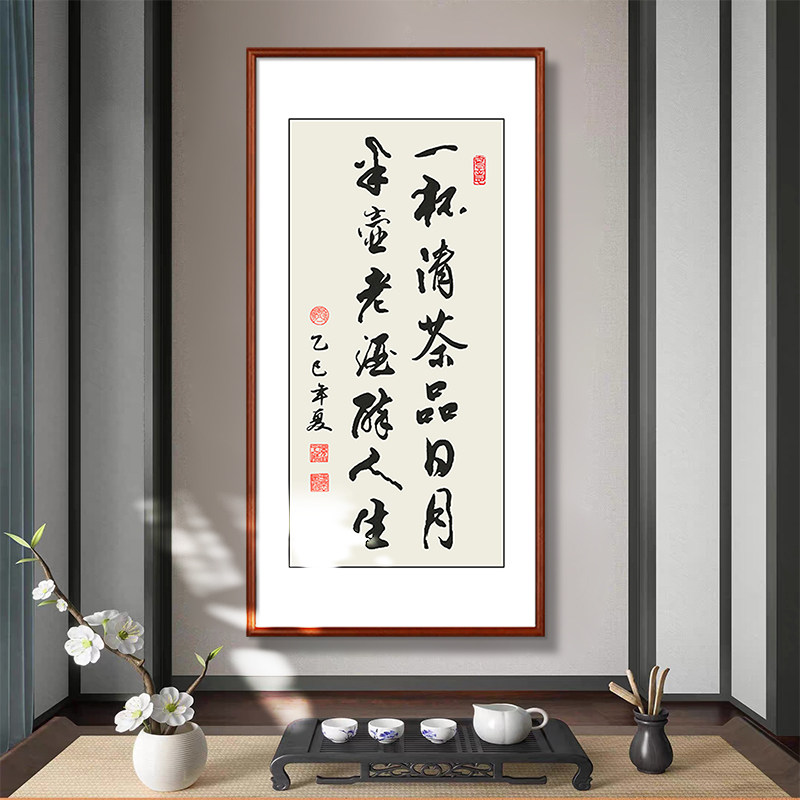 一杯清茶品日月
半壶老酒醉人生
乙巳年夏